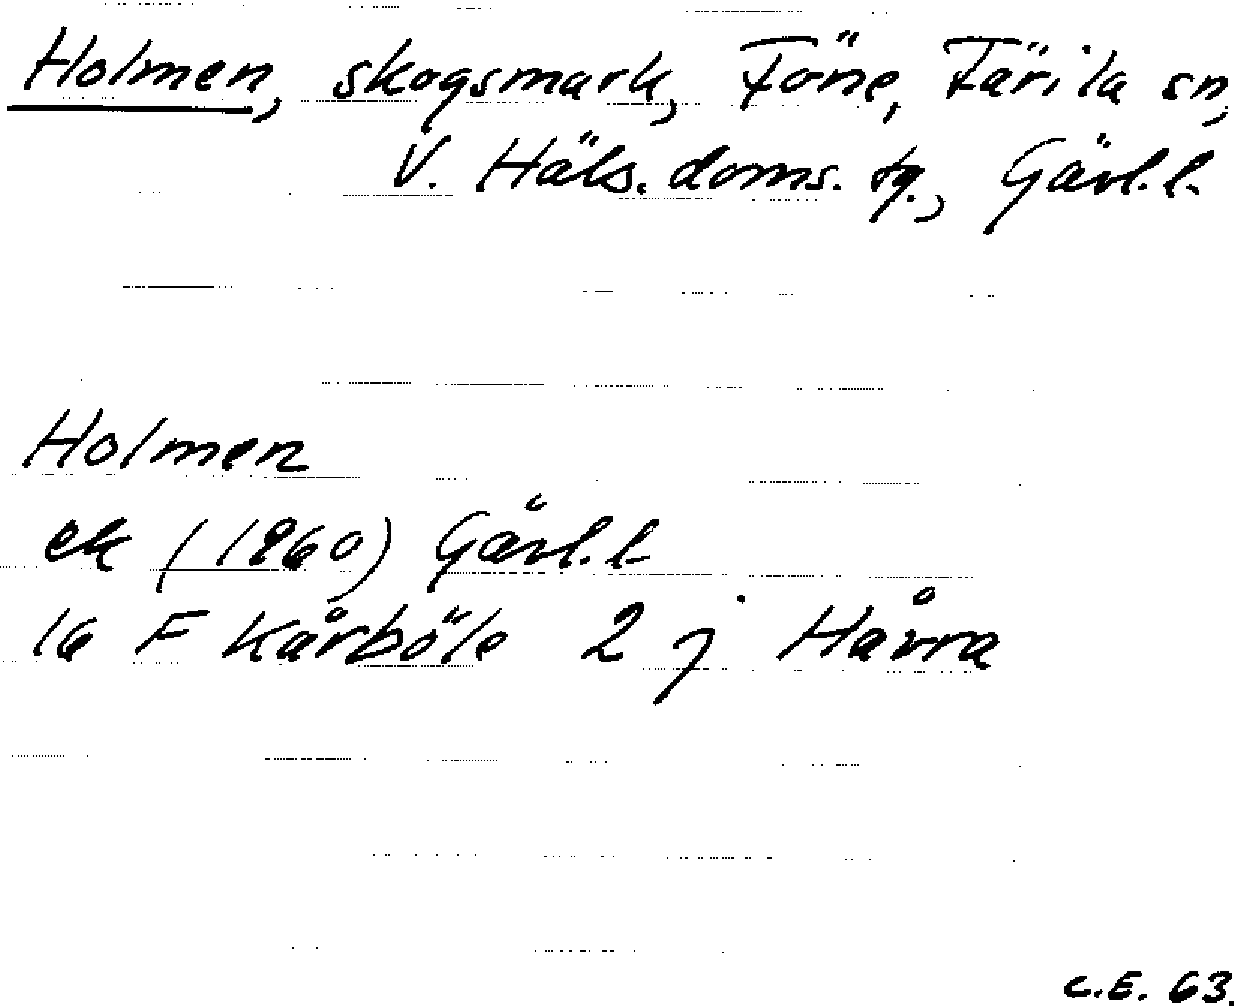 Holmen, skogsmark, Föne, Färila sn,
V. Häls. doms. tg., Gävl. l.
Holmen
ek (1960) Gävl. l.
16 F Kårböle 2 j Håvra
C.E. 63.